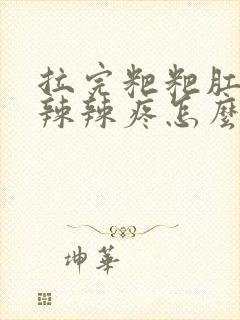 拉完粑粑肛
辣辣疼怎麼
坤華